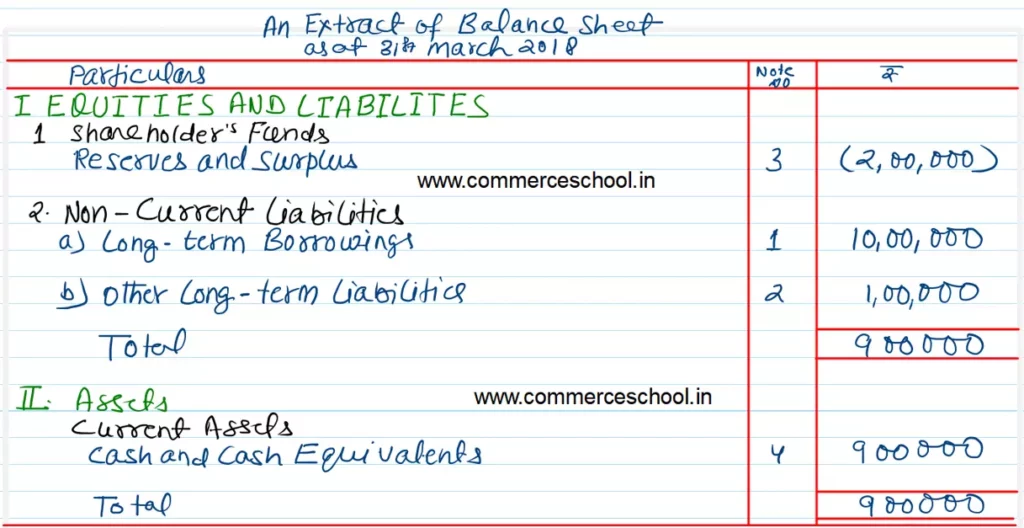 An Extract of Balance Sheet
as at 31st March 2018
Particulars Note no ₹
I EQUITIES AND LIABILITES
1 Shareholder's Funds
Reserves and Surplus 3 (2,00,000)
www.commerceschool.in
2. Non-Current Liabilities
a) Long-term Borrowings 1 10,00,000
b) Other Long-term Liabilities 2 1,00,000
Total 900000
II. Assets
www.commerceschool.in
Current Assets
Cash and Cash Equivalents 4 900000
Total 900000